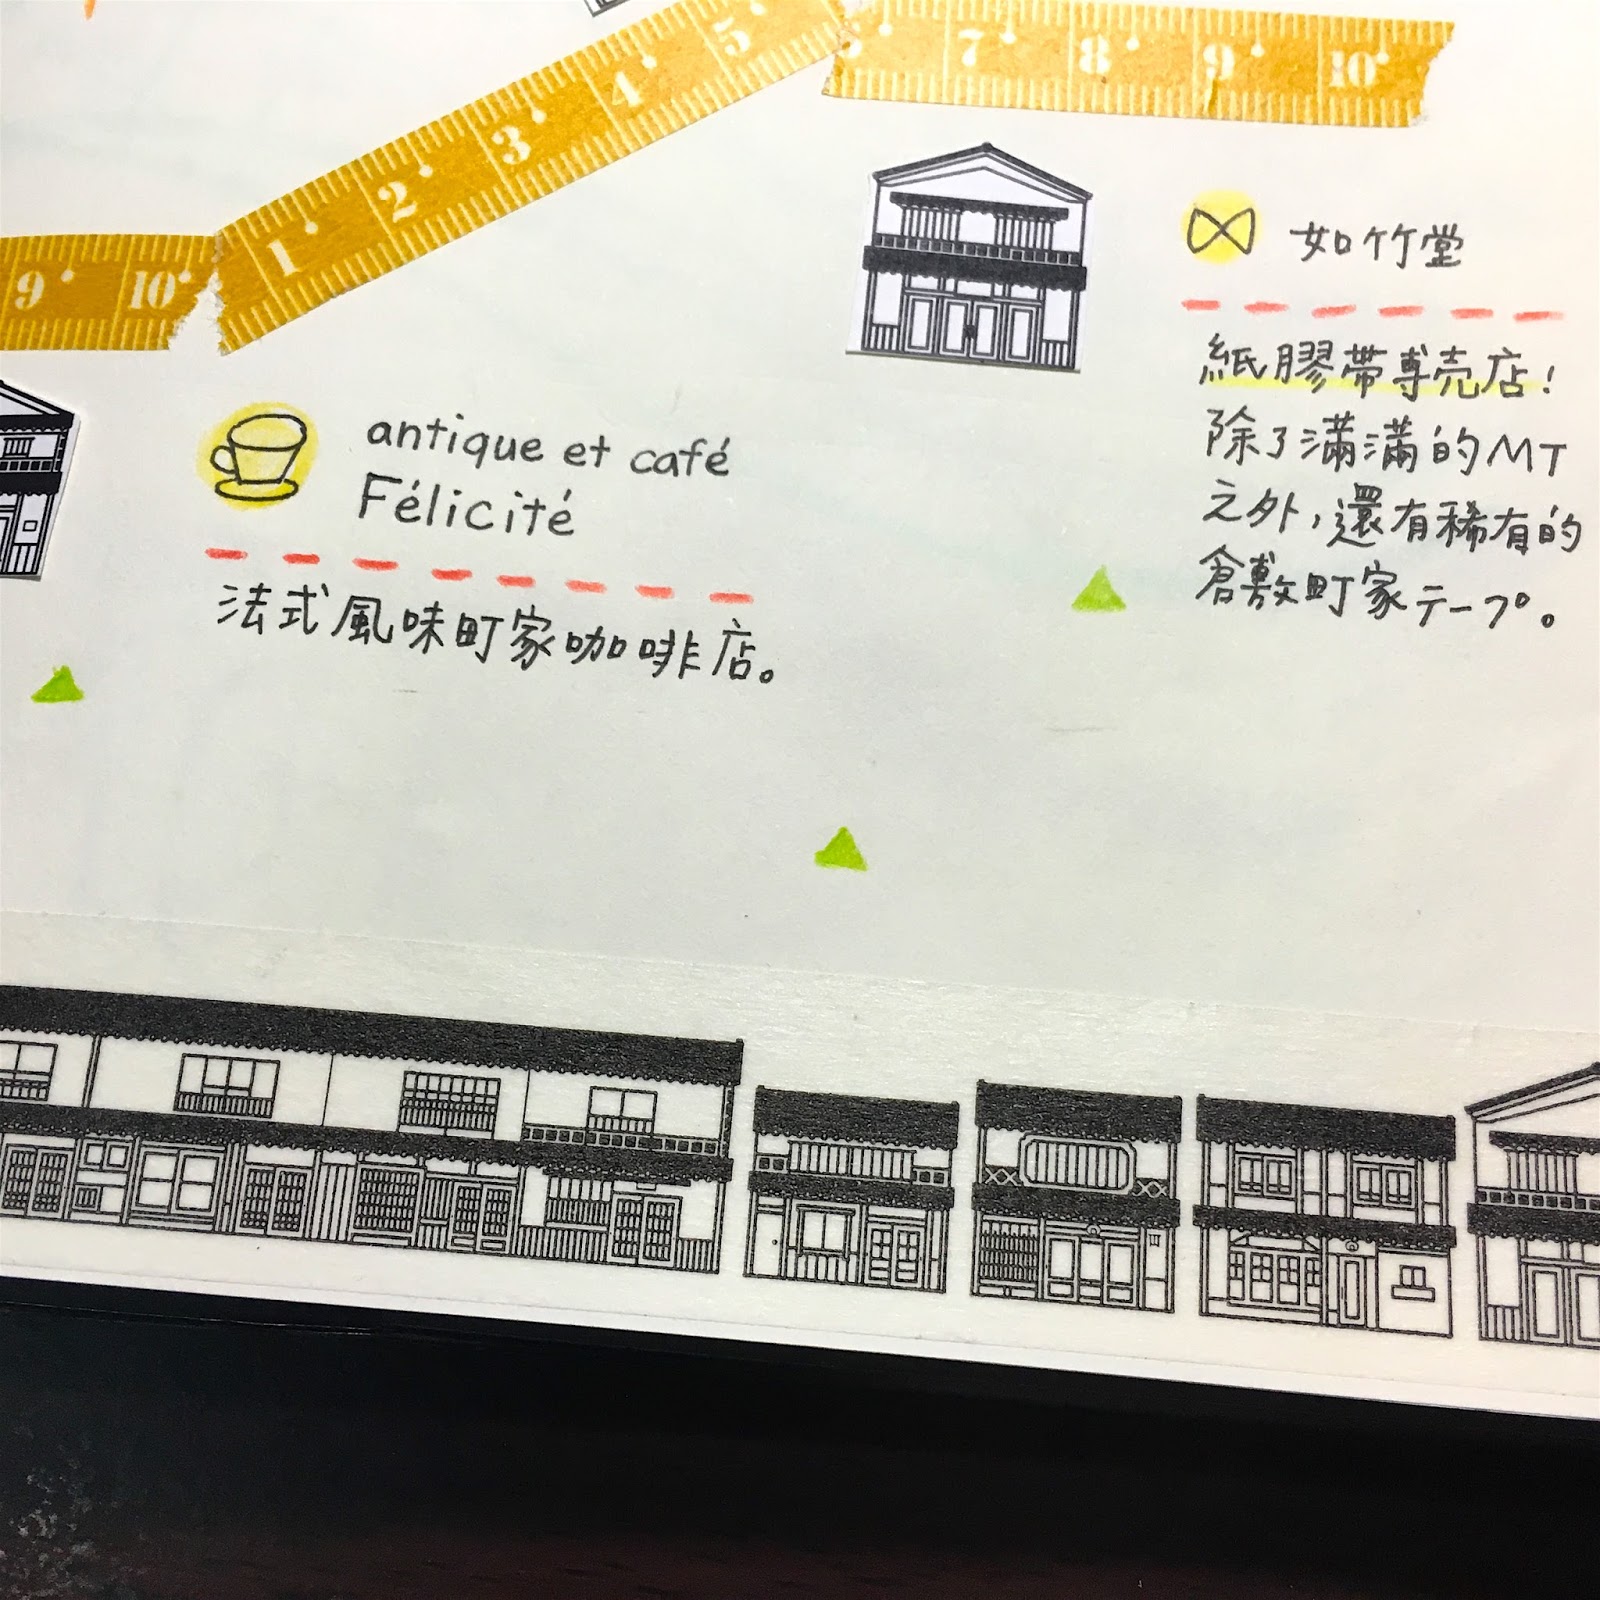 1 2 3 4 5
7 8 9 10
9 10
如竹堂
紙膠帶專売店!
除了滿滿的MT
之外,還有稀有的
倉敷町家テープ。
antique et café
Félicité
法式風味町家咖啡店。